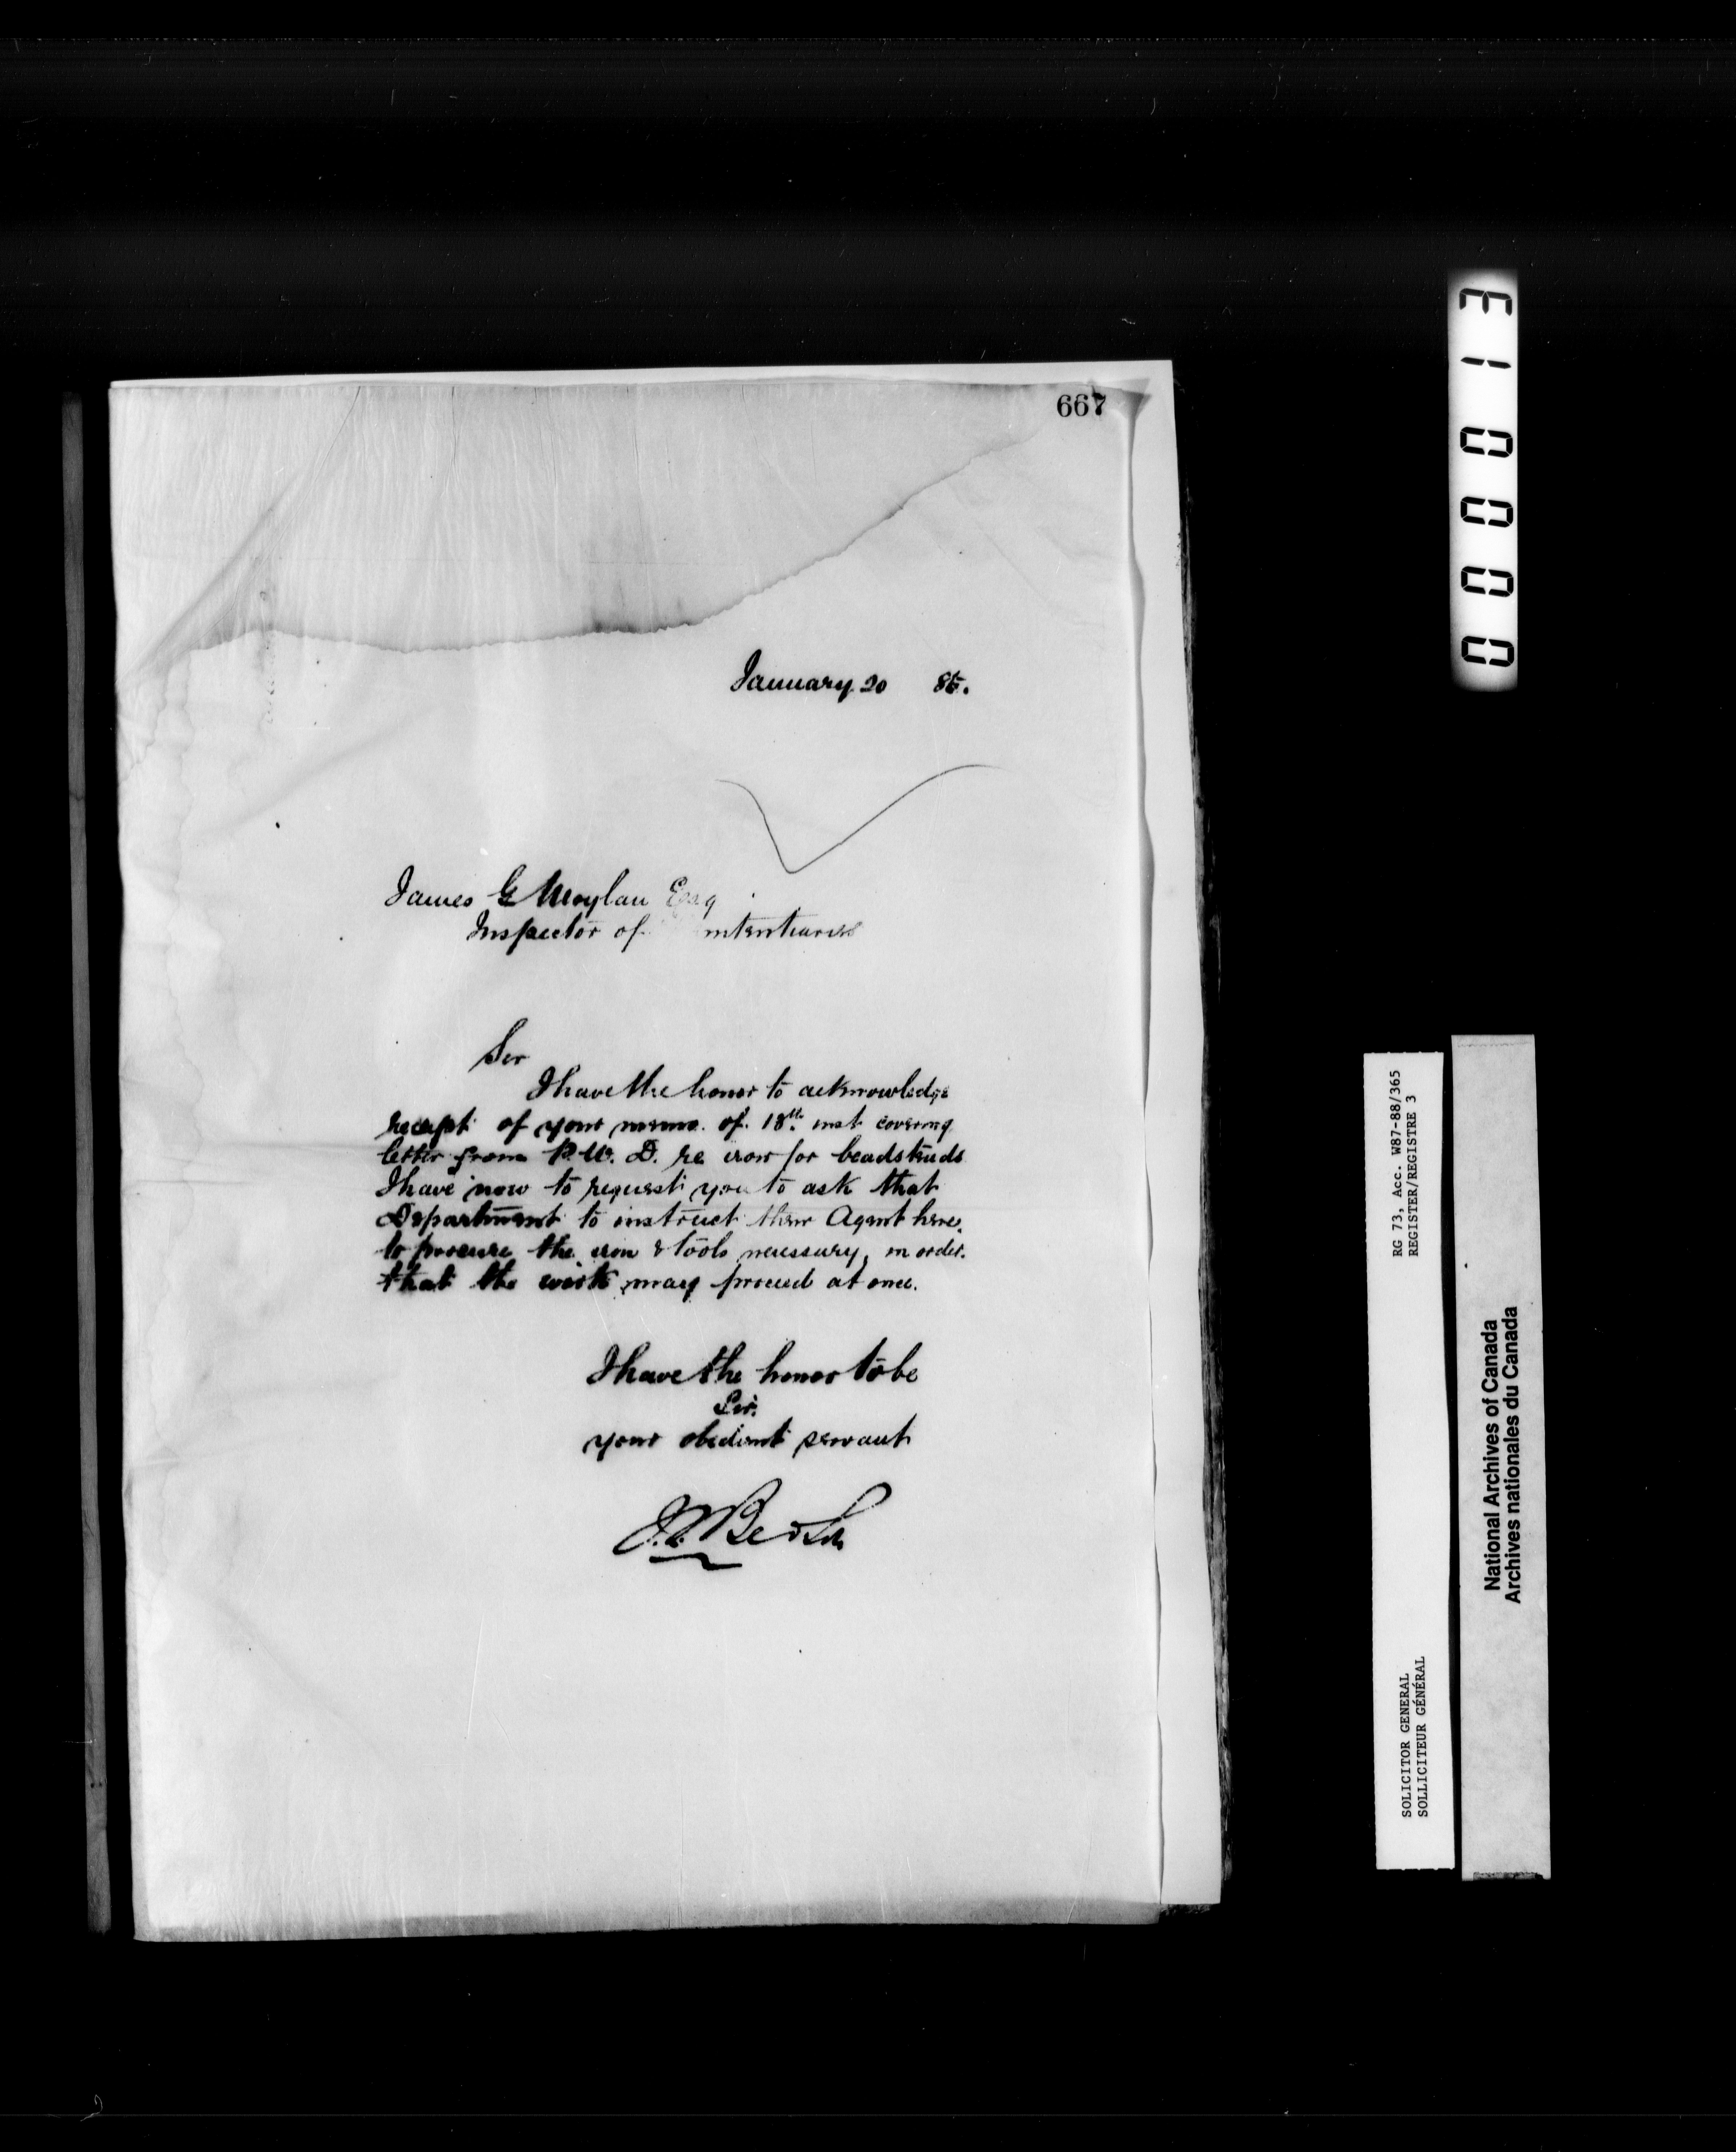 667
January 20 85.
James G Moylan Esq
Inspector of nitentiaries
Sir
I have the honor to acknowledge
receipt of your memo. of 18th inst covering
letter from P. W. D. re iron for beadsteads
I have now to request you to ask that
Department to instruct their Agent here,
to procure the iron & tools necessary, in order
that the work may proceed at once.
I have the honor to be
Sir.
your obedient servant
310000
RG 73, Acc. W87-88/365
REGISTER/REGISTRE 3
SOLICITOR GENERAL
SOLLICITEUR GÉNÉRAL
National Archives of Canada
Archives nationales du Canada